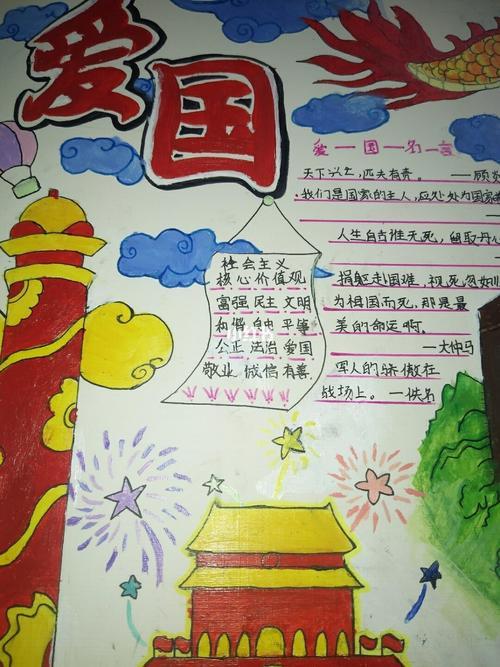 爱国
爱一国一名一言
天下兴亡，匹夫有责。——顾
我们是国家的主人，应处处为国家
人生自古谁无死，留取丹
捐躯赴国难，视死忽如
为祖国而死，那是最
美的命运啊。
—大仲马
军人的骄傲在
战场上。—佚名
社会主义
核心价值观
富强 民主 文明
和谐 自由 平等
公正 法治 爱国
敬业 诚信 有善